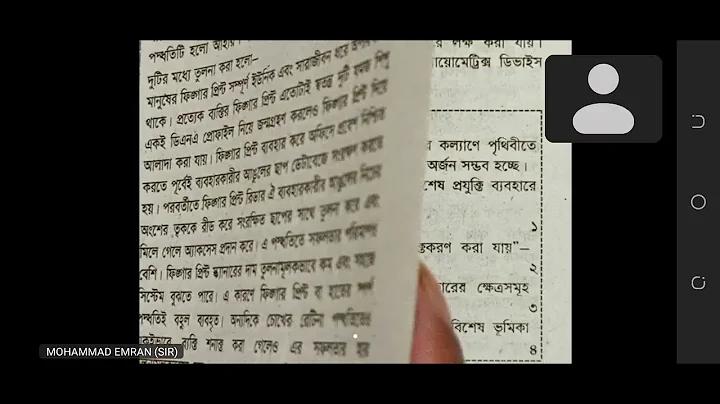 পদ্ধতিটি হলো
দুটির মধ্যে তুলনা করা হলো–
মানুষের ফিঙ্গার প্রিন্ট সম্পূর্ণ ইউনিক এবং সারাজীবন ধরে
থাকে। প্রত্যেক ব্যক্তির ফিঙ্গার প্রিন্ট এতোটাই স্বতন্ত্র দুটি যমজ শিশু
একই ডিএনএ প্রোফাইল নিয়ে জন্মগ্রহণ করলেও ফিঙ্গার প্রিন্ট দিয়ে
আলাদা করা যায়। ফিঙ্গার প্রিন্ট ব্যবহার করে অফিসে প্রবেশ নিশ্চিত
করতে পূর্বেই ব্যবহারকারীর আঙুলের ছাপ ডেটাবেজে সংরক্ষণ করতে
হয়। পরবর্তীতে ফিঙ্গার প্রিন্ট রিডার ঐ ব্যবহারকারীর আঙুলের নিচের
অংশের ত্বককে রীড করে সংরক্ষিত ছাপের সাথে তুলনা করে এবং
মিলে গেলে অ্যাকসেস প্রদান করে। এ পদ্ধতিতে সফলতার পরিমাণও
বেশি। ফিঙ্গার প্রিন্ট স্ক্যানারের দাম তুলনামূলকভাবে কম এবং সহজে
সিস্টেম বুঝতে পারে। এ কারণে ফিঙ্গার প্রিন্ট বা হাতের স্পর্শ
পদ্ধতিই বহুল ব্যবহৃত। অন্যদিকে চোখের রেটিনা পদ্ধতিতেও
ব্যক্তি শনাক্ত করা গেলেও এর সফলতার হার
র লক্ষ করা যায়।
য়োমেট্রিক্স ডিভাইস
র কল্যাণে পৃথিবীতে
অর্জন সম্ভব হচ্ছে।
শেষ প্রযুক্তি ব্যবহারে
১
ক্তকরণ করা যায়”–
২
ারের ক্ষেত্রসমূহ
৩
বিশেষ ভূমিকা
৪
MOHAMMAD EMRAN (SIR)